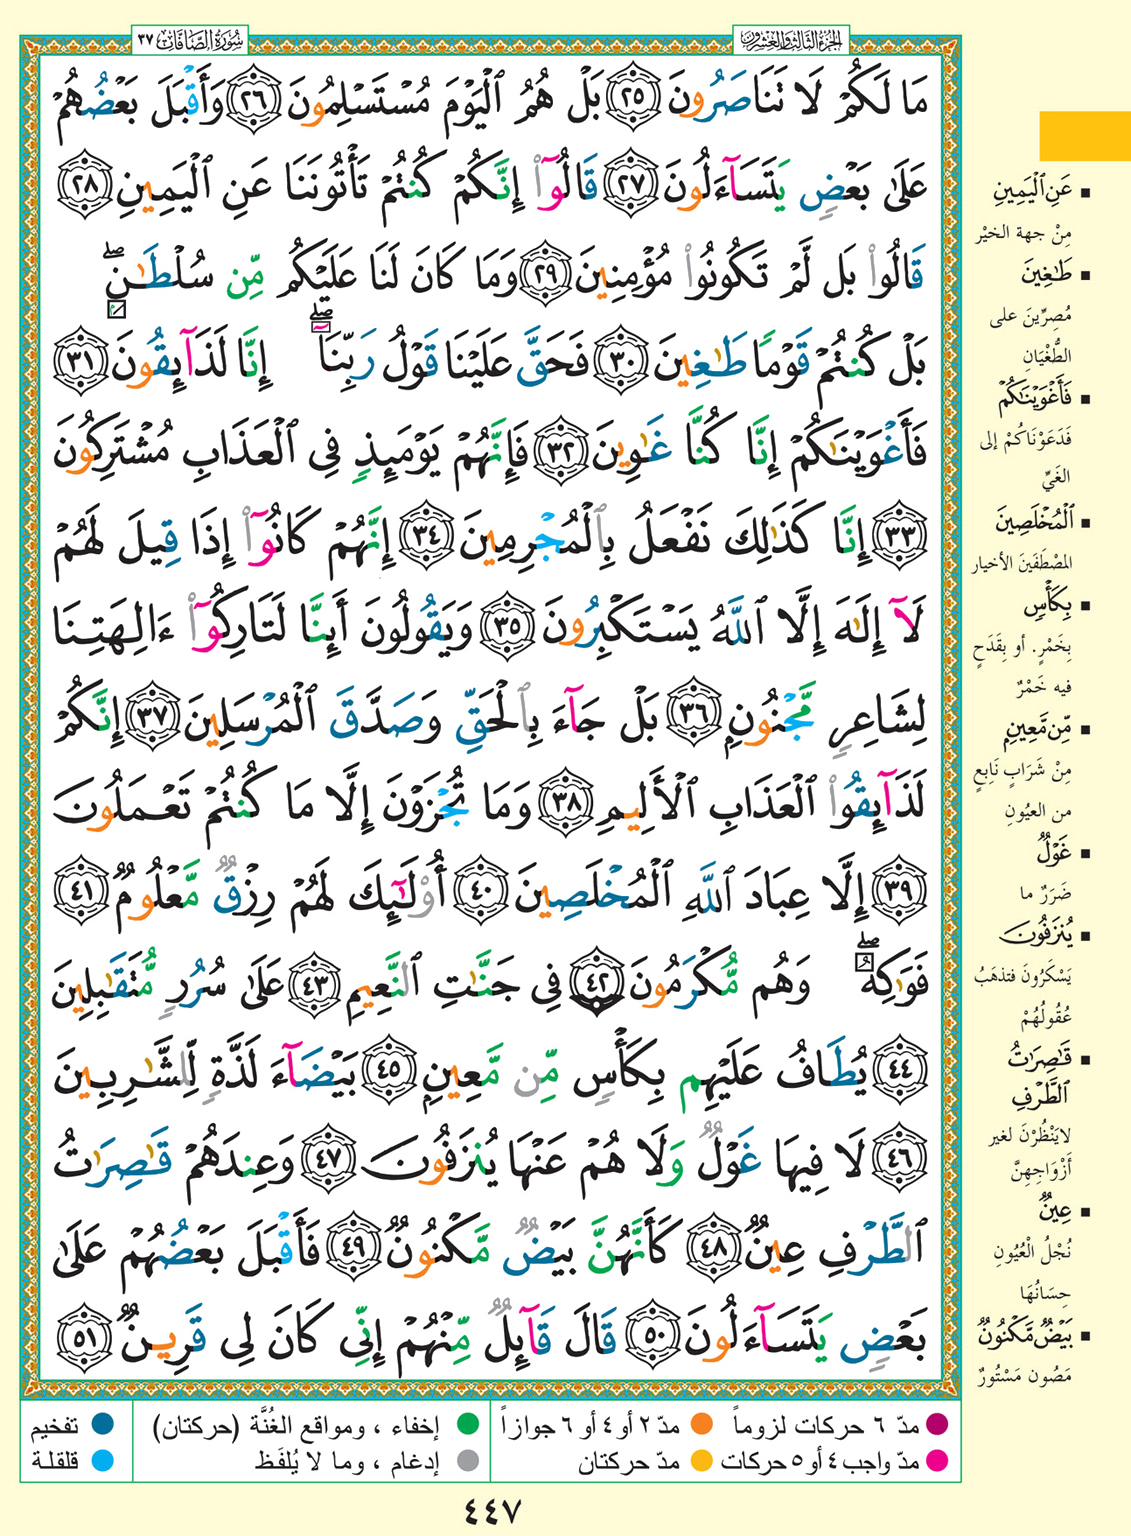 الجزء الثالث والعشرون
سُورَةُ الصَّافَّاتِ ٣٧
مَا لَكُمْ لَا تَنَاصَرُونَ ٢٥ بَلْ هُمُ ٱلْيَوْمَ مُسْتَسْلِمُونَ ٢٦ وَأَقْبَلَ بَعْضُهُمْ
عَلَىٰ بَعْضٍ يَتَسَآءَلُونَ ٢٧ قَالُوٓا۟ إِنَّكُمْ كُنتُمْ تَأْتُونَنَا عَنِ ٱلْيَمِينِ ٢٨
قَالُوا۟ بَل لَّمْ تَكُونُوا۟ مُؤْمِنِينَ ٢٩ وَمَا كَانَ لَنَا عَلَيْكُم مِّن سُلْطَـٰنٍۭ ۖ
بَلْ كُنتُمْ قَوْمًا طَـٰغِينَ ٣٠ فَحَقَّ عَلَيْنَا قَوْلُ رَبِّنَآ ۖ إِنَّا لَذَآئِقُونَ ٣١
فَأَغْوَيْنَـٰكُمْ إِنَّا كُنَّا غَـٰوِينَ ٣٢ فَإِنَّهُمْ يَوْمَئِذٍ فِى ٱلْعَذَابِ مُشْتَرِكُونَ
٣٣ إِنَّا كَذَٰلِكَ نَفْعَلُ بِٱلْمُجْرِمِينَ ٣٤ إِنَّهُمْ كَانُوٓا۟ إِذَا قِيلَ لَهُمْ
لَآ إِلَـٰهَ إِلَّا ٱللَّهُ يَسْتَكْبِرُونَ ٣٥ وَيَقُولُونَ أَئِنَّا لَتَارِكُوٓا۟ ءَالِهَتِنَا
لِشَاعِرٍ مَّجْنُونٍۭ ٣٦ بَلْ جَآءَ بِٱلْحَقِّ وَصَدَّقَ ٱلْمُرْسَلِينَ ٣٧ إِنَّكُمْ
لَذَآئِقُوا۟ ٱلْعَذَابِ ٱلْأَلِيمِ ٣٨ وَمَا تُجْزَوْنَ إِلَّا مَا كُنتُمْ تَعْمَلُونَ
٣٩ إِلَّا عِبَادَ ٱللَّهِ ٱلْمُخْلَصِينَ ٤٠ أُو۟لَـٰٓئِكَ لَهُمْ رِزْقٌ مَّعْلُومٌ ٤١
فَوَٰكِهُ ۖ وَهُم مُّكْرَمُونَ ٤٢ فِى جَنَّـٰتِ ٱلنَّعِيمِ ٤٣ عَلَىٰ سُرُرٍ مُّتَقَـٰبِلِينَ
٤٤ يُطَافُ عَلَيْهِم بِكَأْسٍ مِّن مَّعِينٍۭ ٤٥ بَيْضَآءَ لَذَّةٍ لِّلشَّـٰرِبِينَ
٤٦ لَا فِيهَا غَوْلٌ وَلَا هُمْ عَنْهَا يُنزَفُونَ ٤٧ وَعِندَهُمْ قَـٰصِرَٰتُ
ٱلطَّرْفِ عِينٌ ٤٨ كَأَنَّهُنَّ بَيْضٌ مَّكْنُونٌ ٤٩ فَأَقْبَلَ بَعْضُهُمْ عَلَىٰ
بَعْضٍ يَتَسَآءَلُونَ ٥٠ قَالَ قَآئِلٌ مِّنْهُمْ إِنِّى كَانَ لِى قَرِينٌ ٥١
▪ عَنِ ٱلْيَمِينِ
مِنْ جهة الخيْر
▪ طَـٰغِينَ
مُصِرِّينَ على
الطُّغْيَانِ
▪ فَأَغْوَيْنَـٰكُمْ
فَدَعَوْنَاكُمْ إلى
الغَيِّ
▪ ٱلْمُخْلَصِينَ
المصْطَفَينَ الأخيار
▪ بِكَأْسٍ
بِخَمْرٍ. أو بِقَدَحٍ
فيه خَمْرٌ
▪ مِّن مَّعِينٍ
مِنْ شَرَابٍ نَابِعٍ
من العيُونِ
▪ غَوْلٌ
ضَرَرٌ ما
▪ يُنزَفُونَ
يَسْكَرُونَ فتذهَبُ
عُقُولُهُمْ
▪ قَـٰصِرَٰتُ
ٱلطَّرْفِ
لا يَنْظُرْنَ لغير
أَزْوَاجِهِنَّ
▪ عِينٌ
نُجْلُ الْعُيُونِ
حِسَانُهَا
▪ بَيْضٌ مَّكْنُونٌ
مَصُون مَسْتُورٌ
مدّ ٦ حركات لزوماً مدّ ٢ أو ٤ أو ٦ جوازاً إخفاء ، ومواقع الغُنَّة (حركتان) تفخيم
مدّ واجب ٤ أو ٥ حركات مدّ حركتان إدغام ، وما لا يُلفَظ قلقلة
٤٤٧